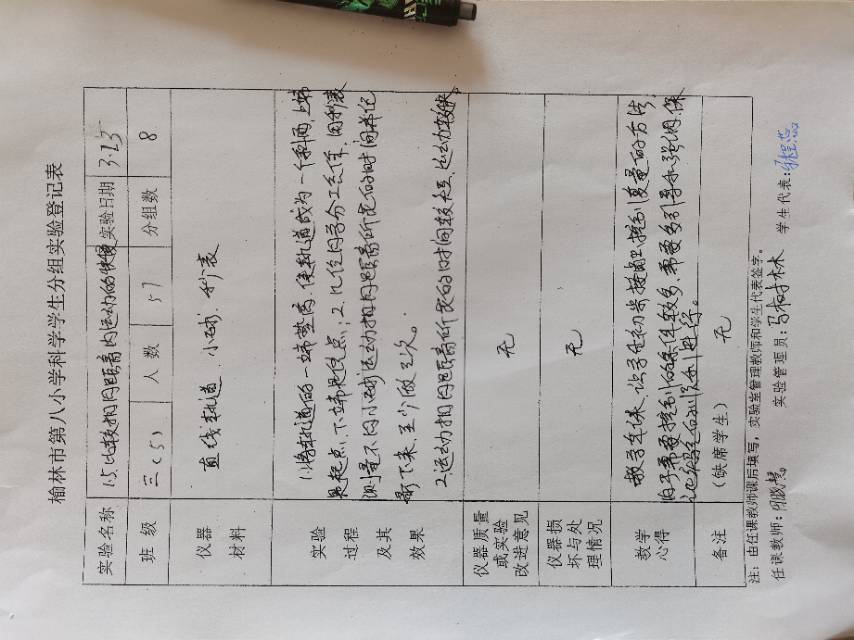 榆林市第八小学科学学生分组实验登记表
实验名称 1.5比较相同距离内运动的快慢 实验日期 3.23
班 级 三(5) 人 数 57 分组数 8
仪器
材料
直线轨道、小球、秒表
实验
过程
及其
效果
1.将轨道的一端垫高,使轨道成为一个斜面,上端
是起点,下端是终点;2.几位同学分工合作,用秒表
测量不同小球运动相同距离所花的时间并记
录下来,至少做3次。
2.运动相同距离所花的时间较短,运动较快。
仪器质量
或实验
改进意见
无
仪器损
坏与处
理情况
无
教学
心得
教学车体,让学生初步接触控制变量的方法,
由于需要控制的条件较多,需要多引导和强调,保
证实验的顺利进行。
备注
(缺席学生)
无
注:由任课教师课后填写,实验室管理教师和学生代表签字。
任课教师: 实验管理员:马树林 学生代表: